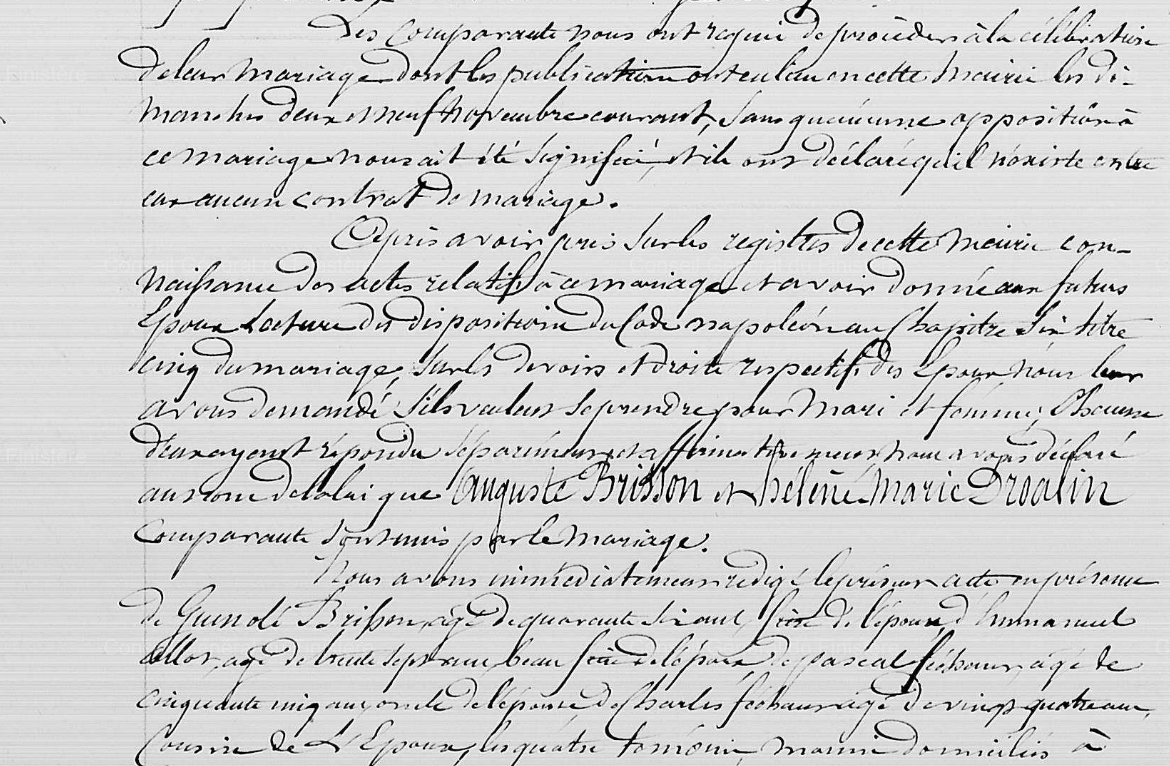 Les comparants nous ont requis de procéder à la célébration
de leur mariage dont les publications ont eu lieu en cette mairie les di-
manches deux et neuf Novembre courant, sans qu'aucune opposition à
ce mariage nous ait été signifiée, et ils ont déclaré qu'il n'existe entre
eux aucun contrat de mariage.
Après avoir pris sur les registres de cette mairie con-
naissance des actes relatifs à ce mariage et avoir donné aux futurs
Epoux lecture des dispositions du Code napoléon au Chapitre six titre
cinq du mariage, sur les devoirs et droits respectifs des Epoux nous leur
avons demandé s'ils veulent se prendre pour Mari et femme; Chacun
d'eux ayant répondu séparément et affirmativement nous avons déclaré
au nom de la loi que Auguste Brisson et hélène Marie Droalin
Comparants sont unis par le mariage.
Nous avons immédiatement rédigé le présent acte en présence
de Guenolé Brisson, agé de quarante six ans, frère de l'époux, d'Emmanuel
agé de trente sept ans, beau frère de l'époux de pascal agé de
cinquante cinq ans, oncle de l'épouse, de Charles agé de vingt quatre ans,
Cousin de L'Epoux, les quatre témoins, marins domiciliés à